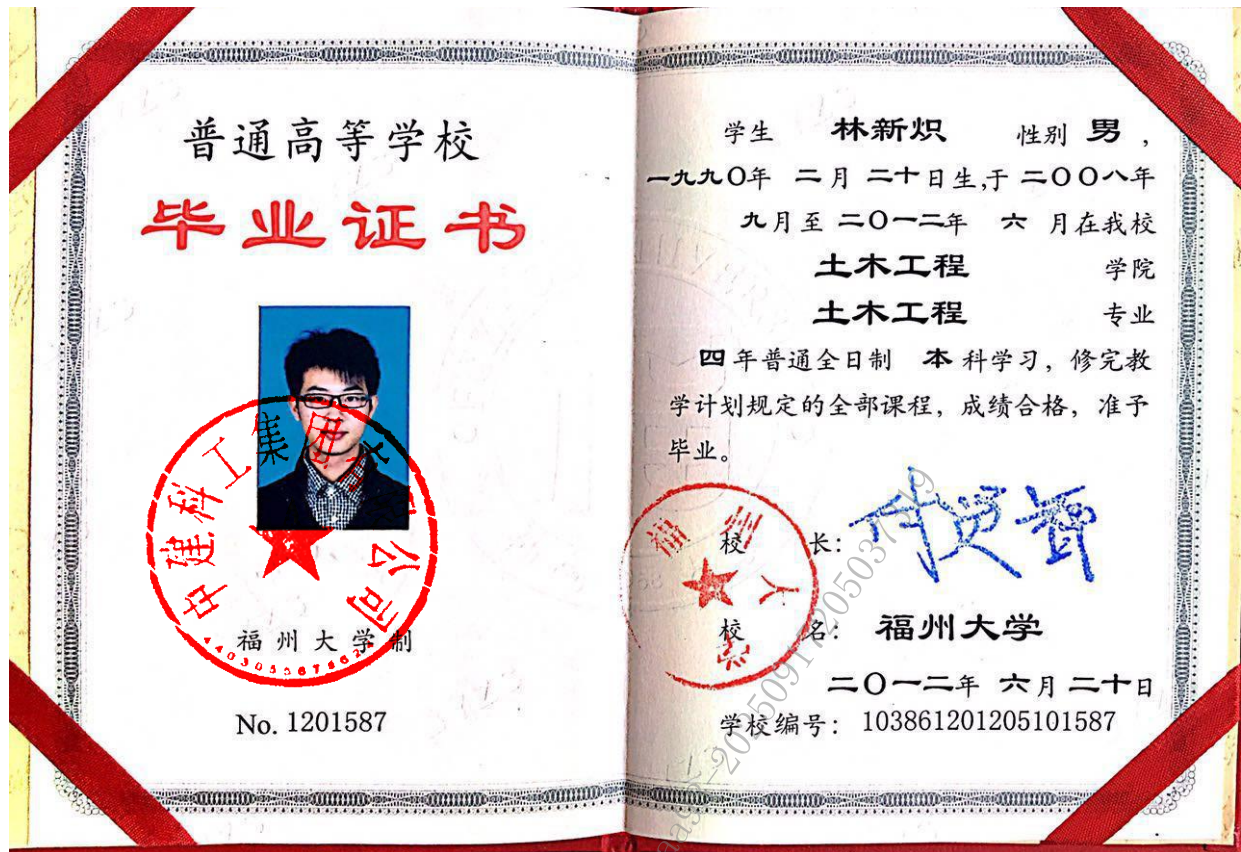 普通高等学校
毕业证书
中建科工集团有限公司
福州大学制
No. 1201587
学生 林新炽 性别 男，
一九九〇年 二月 二十日生,于 二〇〇八年
九月至 二〇一二年 六 月在我校
土木工程 学院
土木工程 专业
四 年普通全日制 本 科学习，修完教
学计划规定的全部课程，成绩合格，准予
毕业。
校 长：
校 名： 福州大学
二〇一二年 六月 二十日
学校编号： 103861201205101587